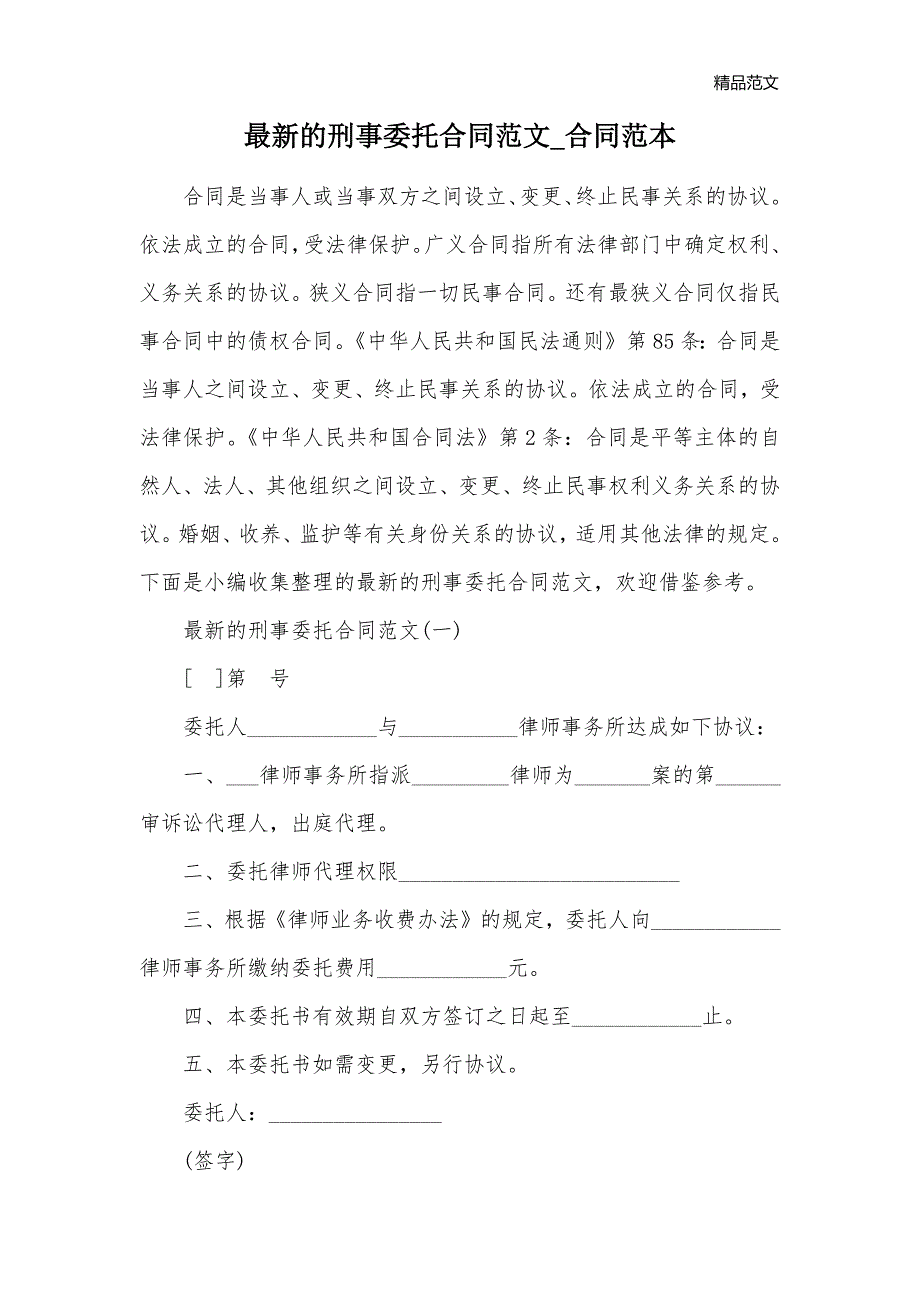 精品范文
最新的刑事委托合同范文_合同范本
合同是当事人或当事双方之间设立、变更、终止民事关系的协议。
依法成立的合同，受法律保护。广义合同指所有法律部门中确定权利、
义务关系的协议。狭义合同指一切民事合同。还有最狭义合同仅指民
事合同中的债权合同。《中华人民共和国民法通则》第85条：合同是
当事人之间设立、变更、终止民事关系的协议。依法成立的合同，受
法律保护。《中华人民共和国合同法》第2条：合同是平等主体的自
然人、法人、其他组织之间设立、变更、终止民事权利义务关系的协
议。婚姻、收养、监护等有关身份关系的协议，适用其他法律的规定。
下面是小编收集整理的最新的刑事委托合同范文，欢迎借鉴参考。
最新的刑事委托合同范文(一)
[　]第　号
委托人____________与___________律师事务所达成如下协议：
一、___律师事务所指派_________律师为_______案的第______
审诉讼代理人，出庭代理。
二、委托律师代理权限__________________________
三、根据《律师业务收费办法》的规定，委托人向____________
律师事务所缴纳委托费用____________元。
四、本委托书有效期自双方签订之日起至____________止。
五、本委托书如需变更，另行协议。
委托人：________________
(签字)